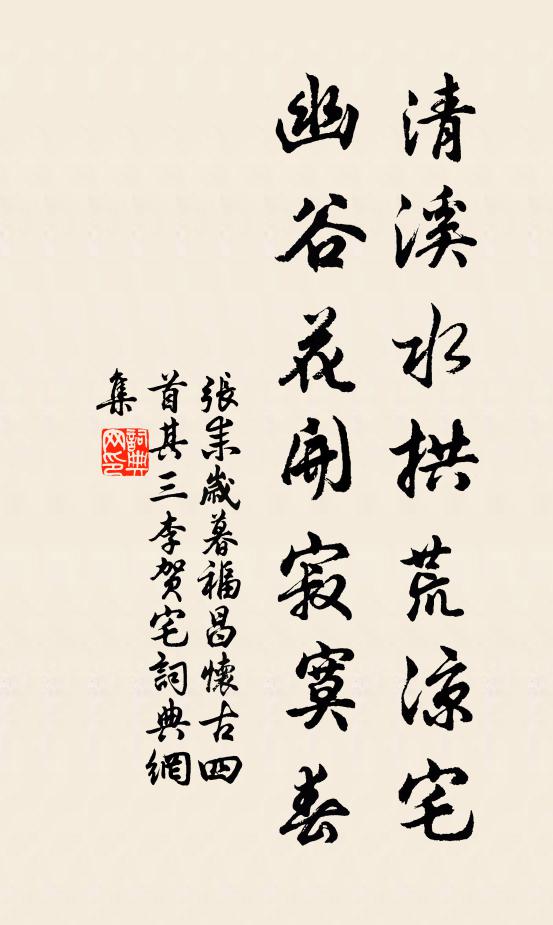 清溪水拱荒涼宅
幽谷花開寂寞春
張耒歲暮福昌懷古四
首其三李賀宅詞典網
集
詞典
网印